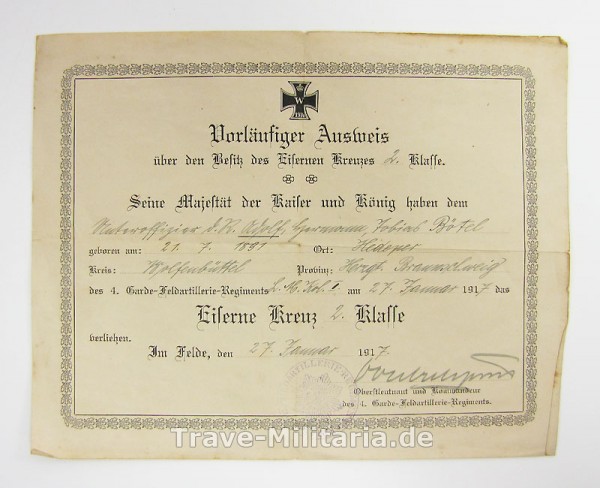 W
Vorläufiger Ausweis
über den Besitz des Eisernen Kreuzes 2. Klasse.
Seine Majestät der Kaiser und König haben dem
Unteroffizier d. R. Adolf, Hermann, Tobias Bötel
geboren am: 21. 7. 1891 Ort: Hedeper
Kreis: Wolfenbüttel Provinz: Hrzgt. Braunschweig
des 4. Garde-Feldartillerie-Regiments am 27. Januar 1917 das
Eiserne Kreuz 2. Klasse
verliehen.
Im Felde, den 27. Januar 1917.
Oberstleutnant und Kommandeur
des 4. Garde-Feldartillerie-Regiments.
Trave-Militaria.de